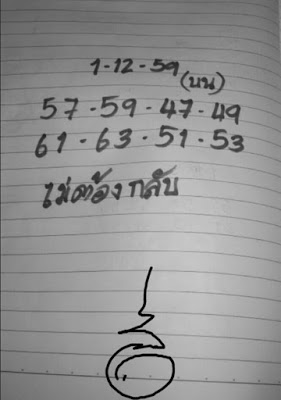 1-12-59
(บน)
57-59-47-49
61-63-51-53
ไม่ต้องกลับ